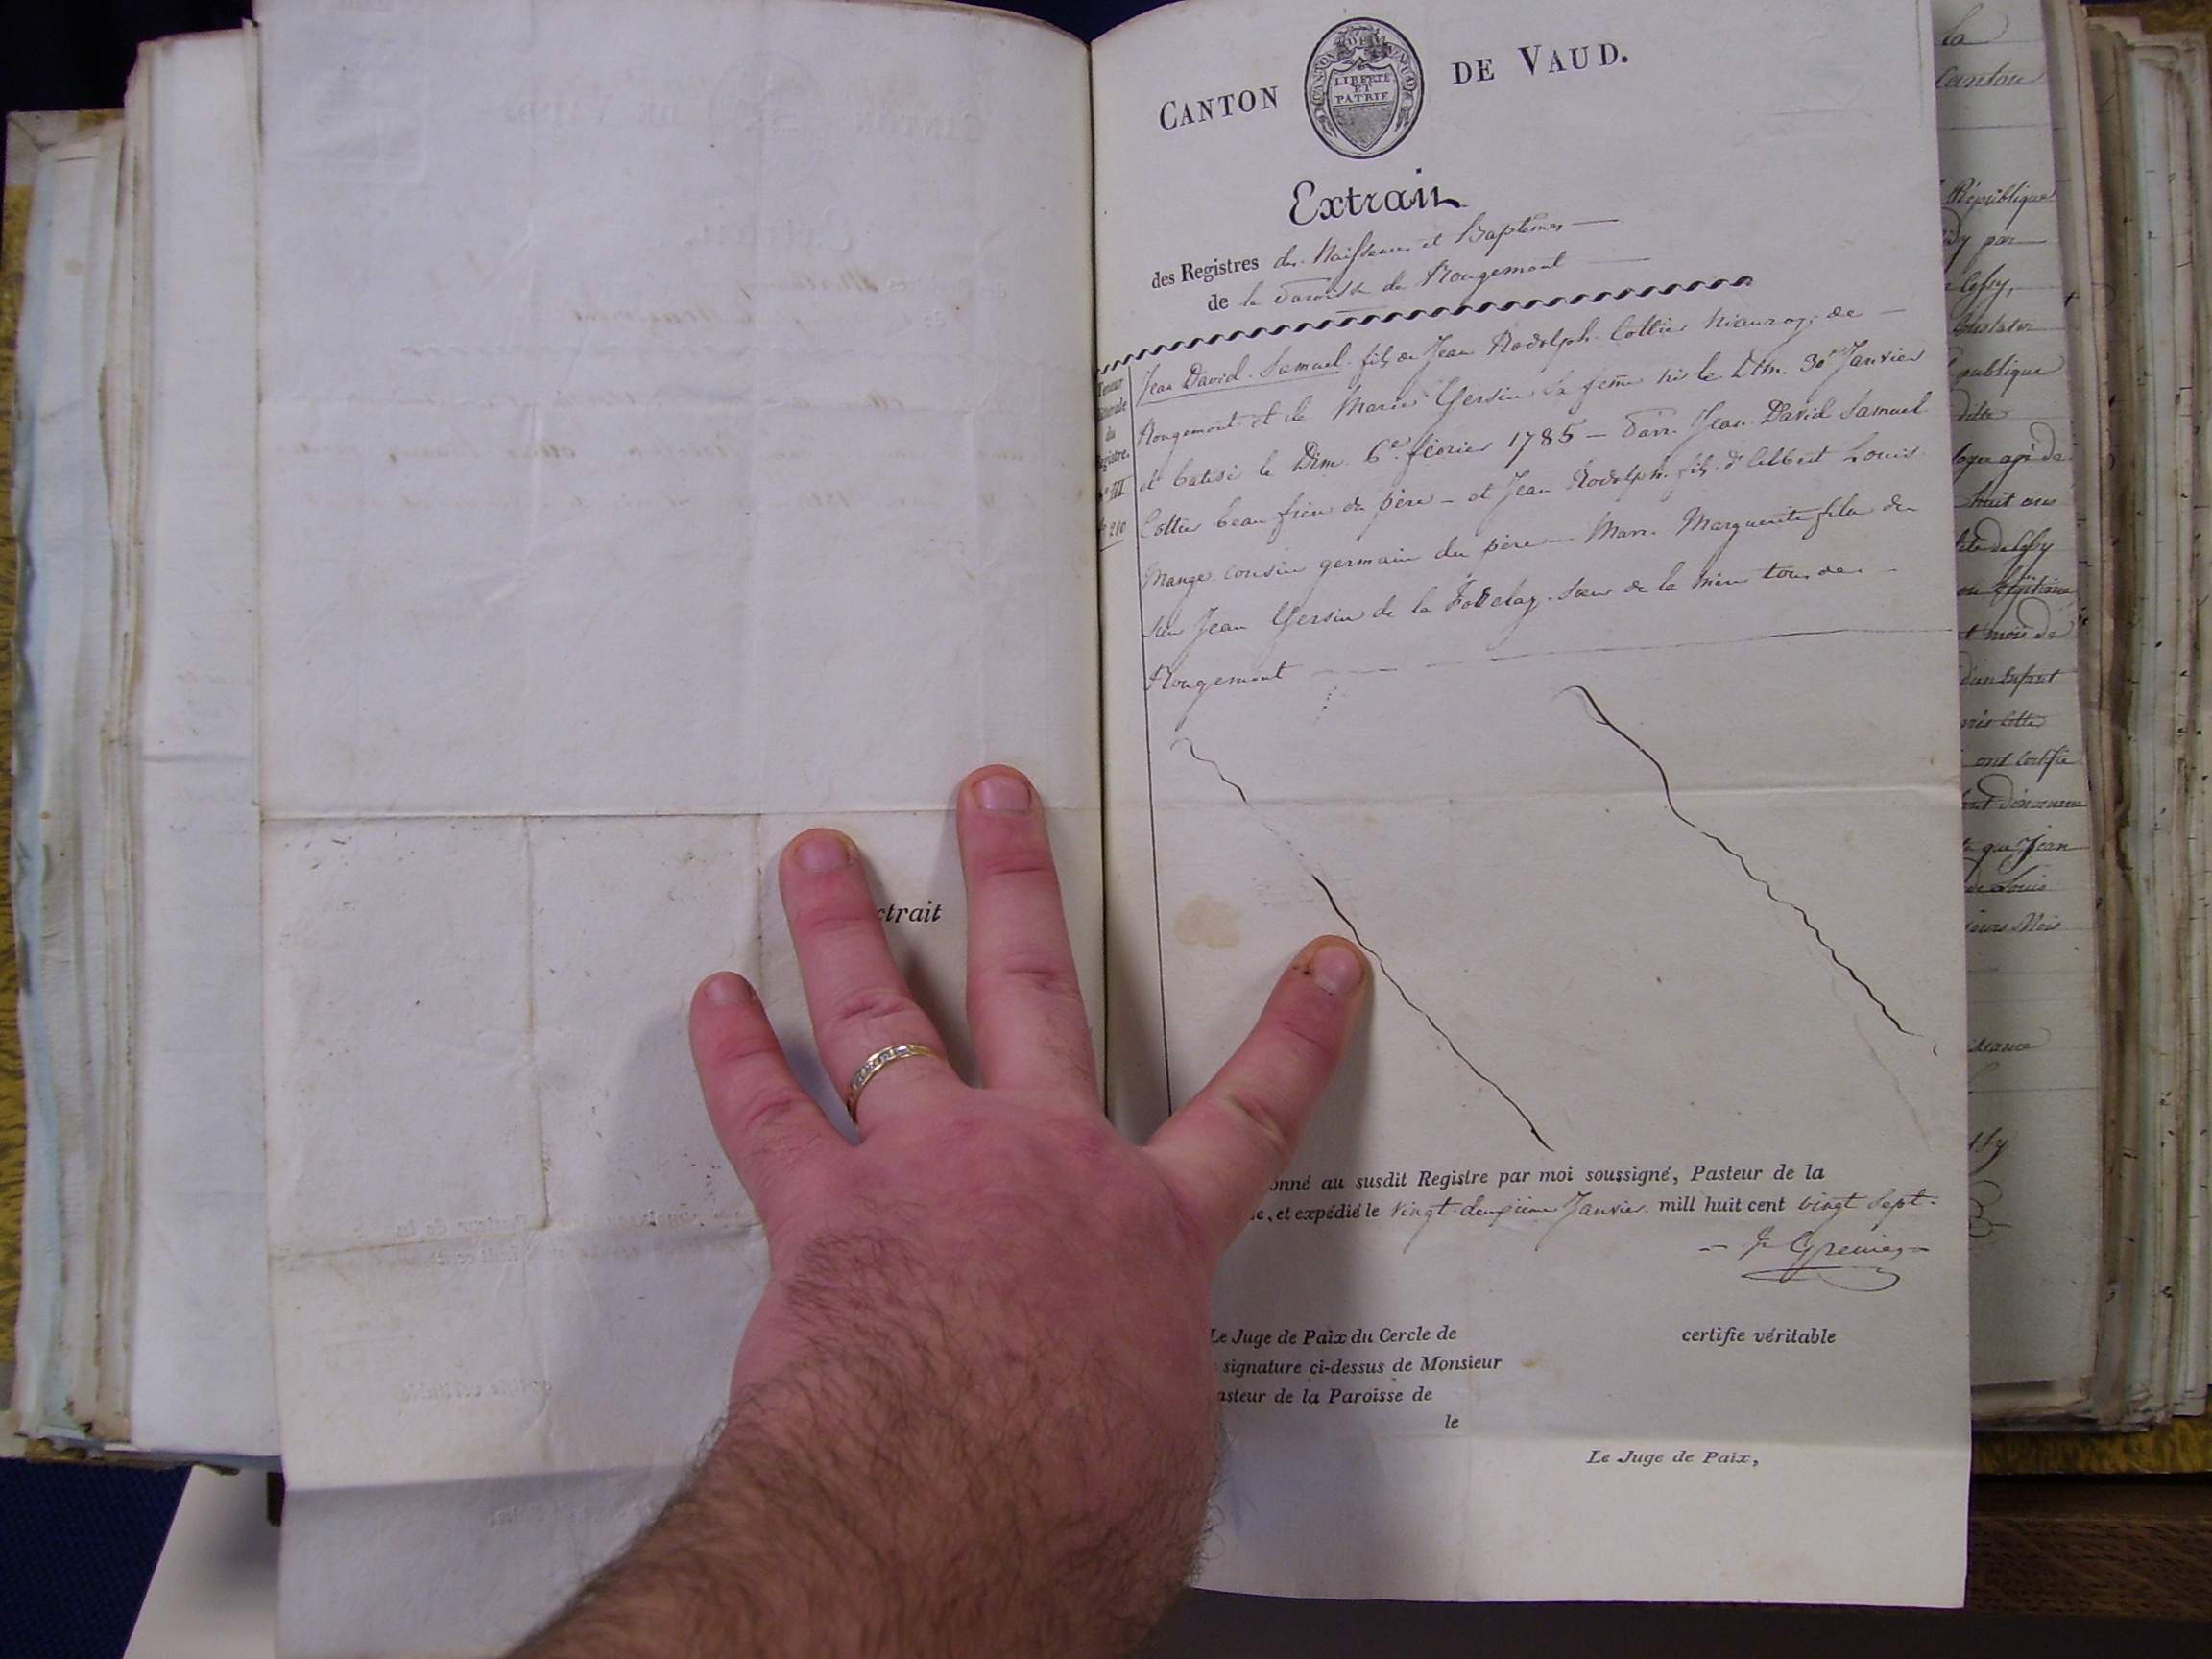 CANTON DE VAUD.
CANTON DE VAUD
LIBERTÉ
ET
PATRIE
Extrait
des Registres des Naissances et Baptêmes
de la Paroisse de Rougemont
Teneur
littérale
du
Registre.
N° III
fo 210
Jean David Samuel fils de Jean Rodolph Cottier de
Rougemont et de Marie Yersin sa feme né le Dim. 30e Janvier
et batisé le Dim. 6e février 1785 — Parr. Jean David Samuel
Cottier beau frère du père — et Jean Rodolph fils d'Albert Louis
Mange cousin germain du père — Marr. Marguerite fille de
feu Jean Yersin de la sœur de la mère tous de
Rougemont
ctrait
onné au susdit Registre par moi soussigné, Pasteur de la
e, et expédié le vingt deuxième Janvier mill huit cent vingt sept.
Le Juge de Paix du Cercle de certifie véritable
signature ci-dessus de Monsieur
asteur de la Paroisse de
le
Le Juge de Paix,
la
Canton
République
par
publique
dite
huit ans
mois de
ont certifié
que Jean
de Louis